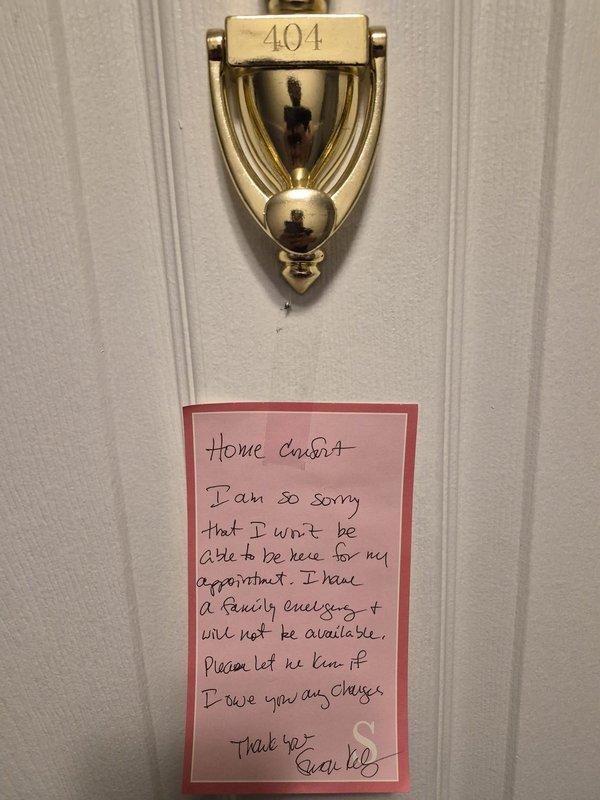 404
Home Comfort
I am so sorry
that I won't be
able to be here for my
appointment. I have
a family emergency +
will not be available.
Please let me know if
I owe you any charges
Thank you
S